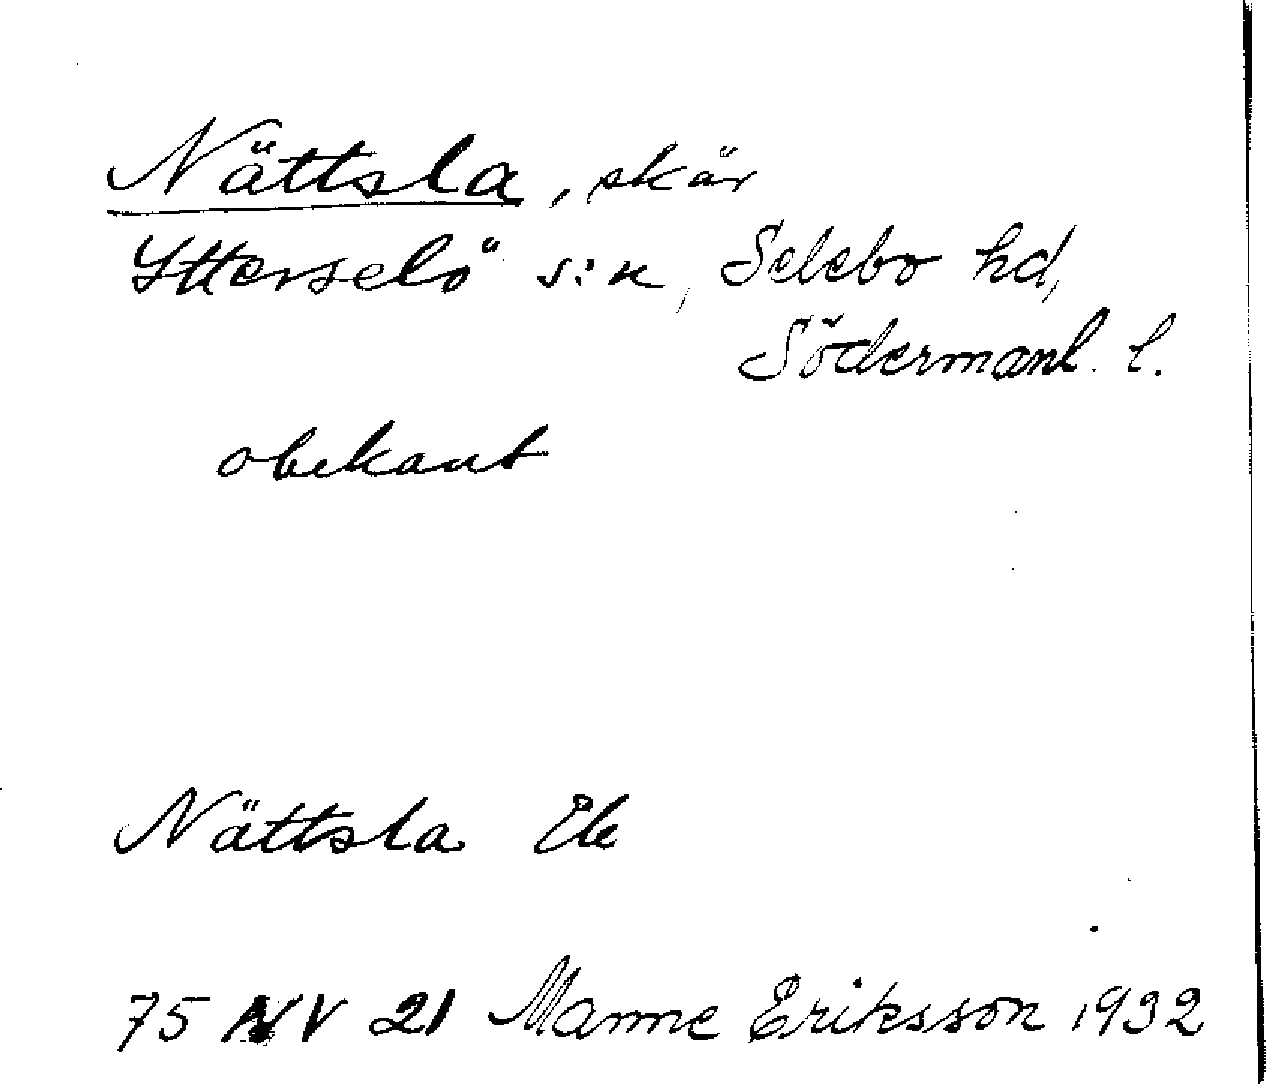 Nättsla, skär
Ytterselö s:n, Selebo hd,
Södermanl. l.
obekant
Nättsla Ek
75 NV 21 Manne Eriksson 1932